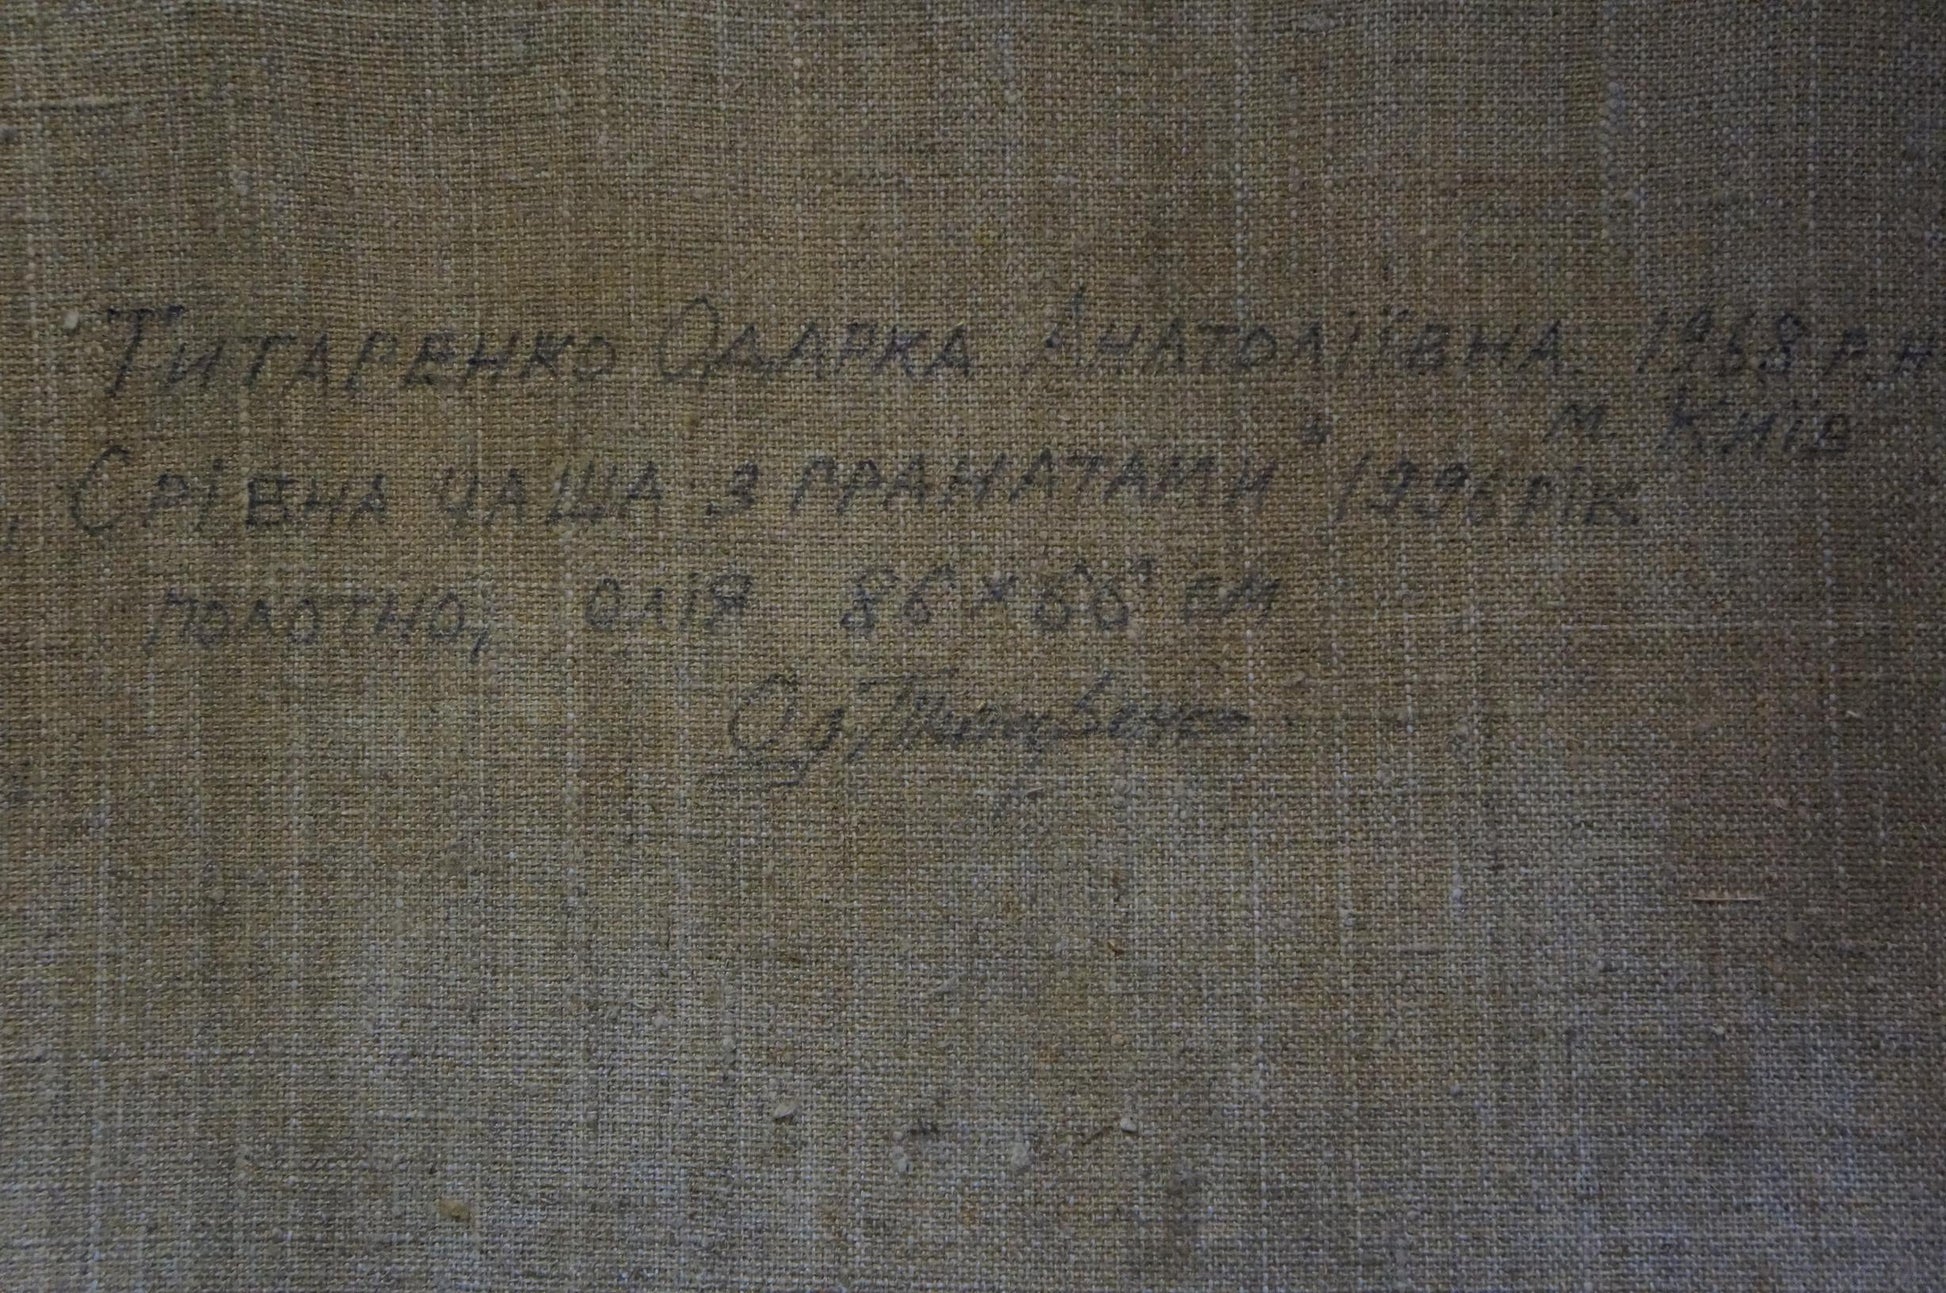 Титаренко Одарка Анатоліївна 1968 р.н
м. Київ
„Срівна чаша з гранатами" 1996 рік
полотно, олія 86 × 66 см